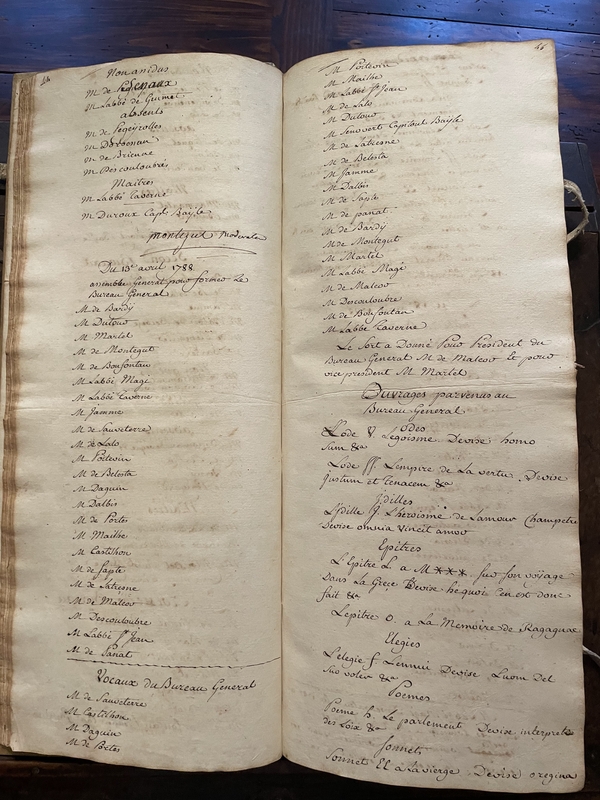 44
Non amidus
M de
M Labbé de Guimet
absents
M de Pegeyrolles
M
M de Brienne
M Descouloubre
Maitres
M Labbé Caverne
M Duroux Capl Bayle
Montégut moderateur
Du 13e avril 1788
assemblée General pour former Le
Bureau General
M de Bardy
M Dutour
M Martel
M de Montegut
M de Bonfontan
M Labbé Magi
M Labbé Caverne
M Jamme
M de Sauveterre
M de Lalo
M Poitevin
M de Belesta
M Daguin
M Dalbis
M de Portes
M Mailhe
M Castilhon
M de Sapte
M de Latresne
M de Malcor
M Descouloubre
M Labbé St Jean
M de Panat
Vocaux du Bureau General
M de Sauveterre
M Castilhon
M Daguin
M de Portes
45
M Poitevin
M Mailhe
M Labbé St Jean
M de Lalo
M Dutour
M Senovert Capitoul Bayle
M de Latresne
M de Belesta
M Jamme
M Dalbis
M de Sapte
M de panat
M de Bardy
M de Montegut
M Martel
M Labbé Magi
M de Malcor
M Descouloubre
M de Bonfontan
M Labbé Caverne
Le Sort a Donné Pour President du
Bureau General M de Malcor Et pour
vice president M Martel
Ouvrages parvenus au
Bureau General
Odes
L'ode V. Legoisme. Devise homo
Sum &a
Lode ff Lempire de La vertu. Devise
justum et Tenacem &a
Jdilles
L'Jdille J. Lheroisme de Lamour Champetre
Devise omnia Vincit amor
Epitres
L'Epitre L a M xxx. Sur Son voyage
Dans la Grece Devise he quoi C'en est donc
fait &a
Lepitre O. a La Memoire de
Elegies
L'elegie f Lennui Devise Luom Del
Suo voler &a
Poemes
Poeme h. Le parlement Devise interprete
des Loix &a
Sonnets
Sonnet El a La vierge Devise o regina